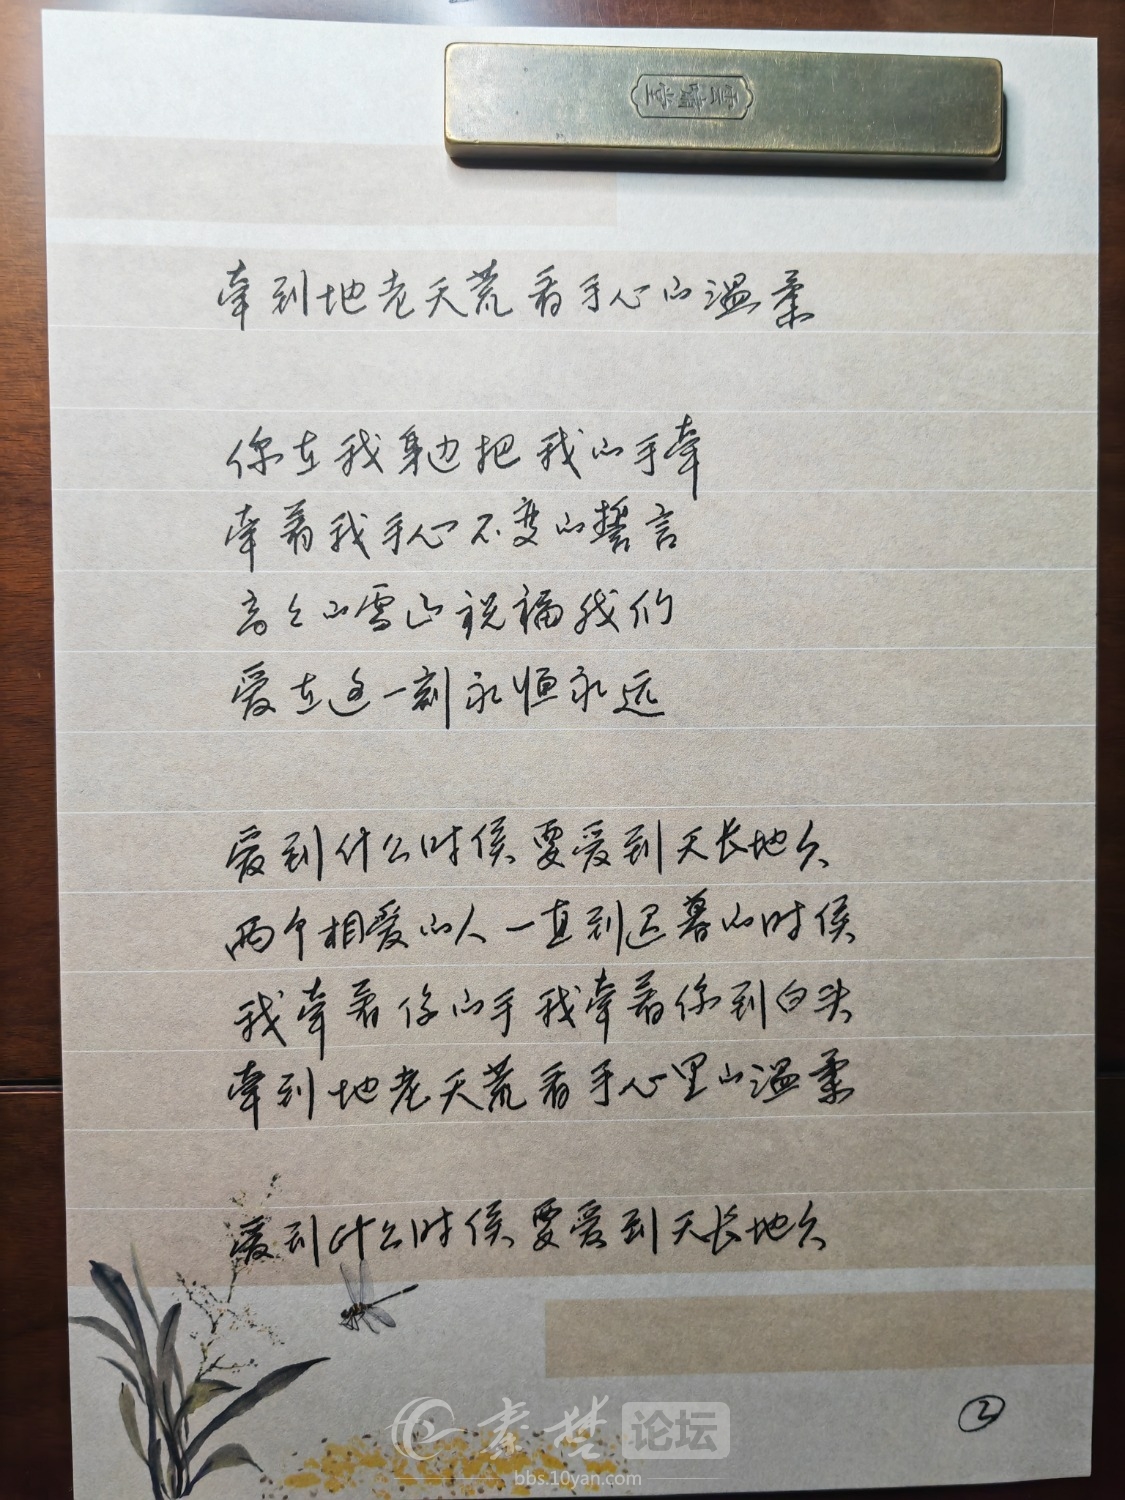 雲嘯堂
牵到地老天荒看手心的温柔
你在我身边把我的手牵
牵着我手心不变的誓言
高高的雪山祝福我们
爱在这一刻永恒永远
爱到什么时候要爱到天长地久
两个相爱的人一直到迟暮的时候
我牵着你的手我牵着你到白头
牵到地老天荒看手心里的温柔
爱到什么时候要爱到天长地久
②
秦楚论坛
bbs.10yan.com